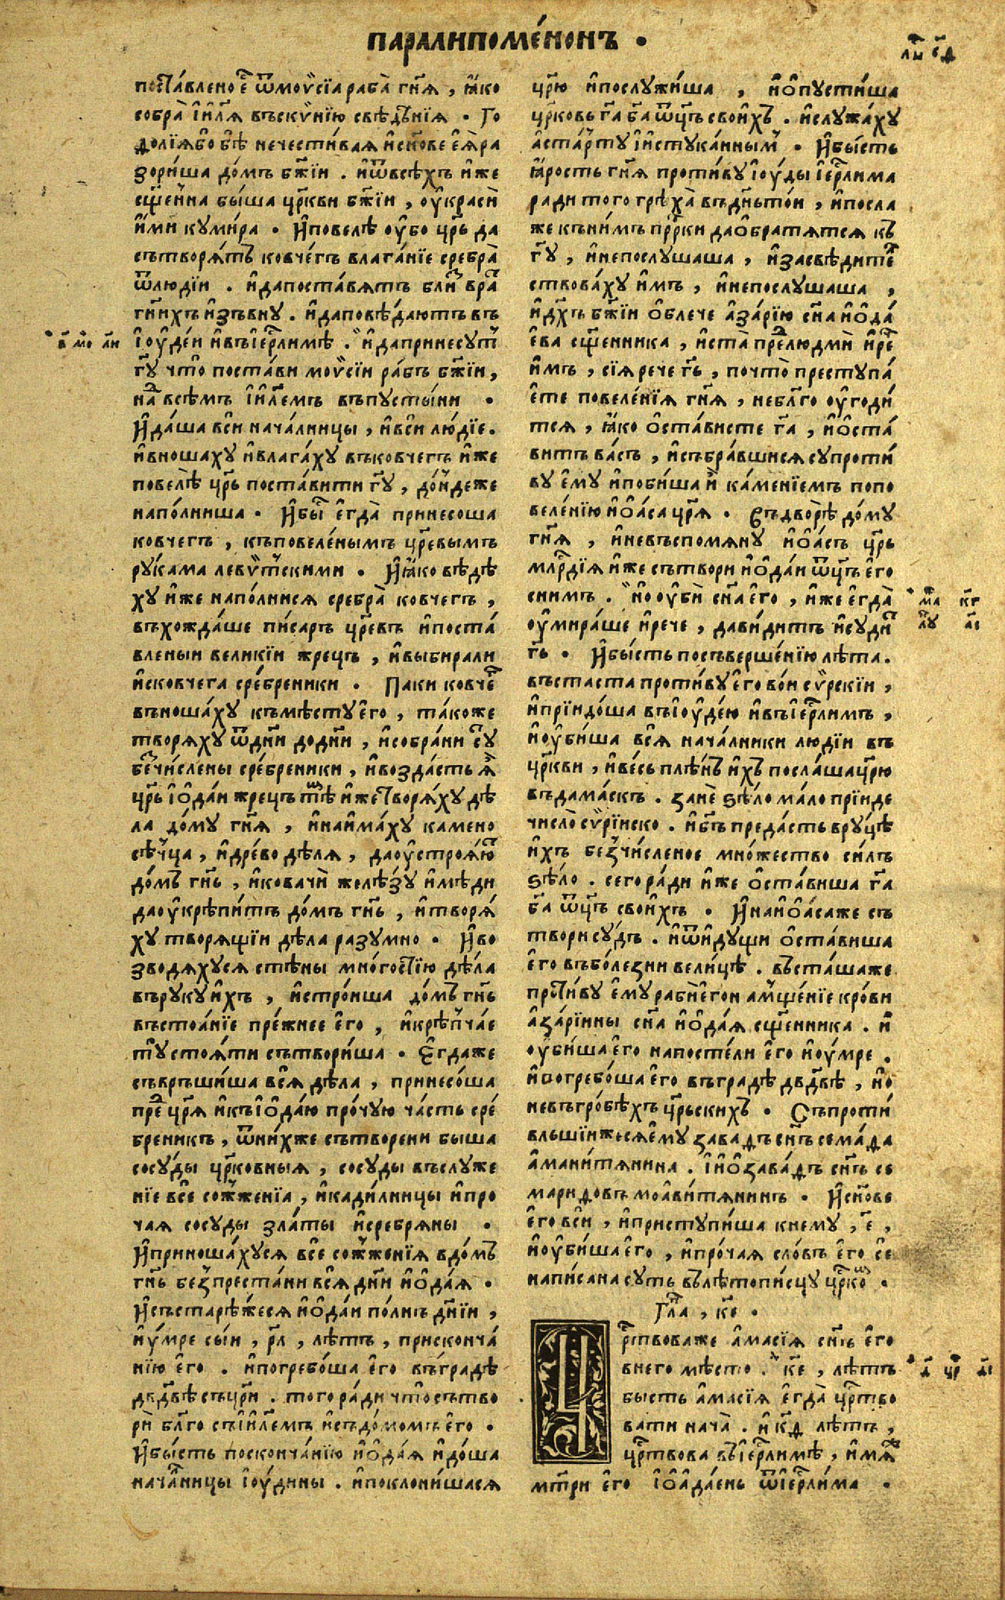 паралипоме́нонъ .
поста́влено е҆̑ ѿ мои҆сі́а раба̀ гн҃я , я҆́ко
собра̀ і҆и҃ля въ скинїю свѣдѣ́нїя . Го
долїя бо бѣ̀ нечести́вая и҆ сн҃ове є҆я̀ ра
зори́ша до́мъ бж҃їи . и҆ ѿ всѣ́хъ и҆́же
сщ҃е́нна бы́ша цр҃кви бж҃їи , оу҆краси̂
и҆́ми куми́ра . И҆ повелѣ̀ оу҆́бо цр҃ь да
сътворя́тъ ковче́гъ влага́нїе сребра̀
ѿ людїи . и҆ да поста́вятъ бли́з врат
гн҃ихъ и҆зъ внꙋ̀ . и҆ да повѣ́даютъ въ
в҃ мо л҃
і҆оу҆де́и и҆ въ і҆ер҃лимѣ . и҆ да принесутъ
гу҃ что̀ поста́ви мои҆сїи ра́бъ бж҃їи ,
на́д всѣ́мъ і҆и҃лемъ въ пусты́ни .
И҆ да́ша вси̂ нача́лницы , и҆ вси̂ лю́дїе .
и҆ вноша́ху и҆ влага́ху въ ковчегъ и҆́же
повелѣ̀ цр҃ь поста́вити гу҃ , до́ндеже
напо́лниша . И҆ бы́с е҆гда̀ принесоша
ковчегъ , къ повеле́нымъ цр҃евымъ
рука́ма левитскими . И҆ я҆́ко вѣ́дѣ
ху и҆́же напо́лнися сребра̀ ковчегъ ,
въхожда́ше пи́саръ цр҃евъ и҆ поста́
вленыи вели́кїи жрецъ , и҆ выбира́ли
и҆с ковчега сре́бреники . Па́ки ковче́г
въноша́ху къ мѣ́сту е҆го̀ , та́коже
творя́ху ѿ дн҃и до дн҃и , и҆ собра́ни су́
бесчи́слены сре́бреники , и҆ возда́сть я҆̀
цр҃ь і҆ода́и жрецъ тѣ̂м и҆́же творя́ху дѣ
ла до́му гн҃я , и҆ наима́ху камено
сѣ́чца , и҆ дре́водѣля , да оу҆строя́ют
до́мъ гн҃ь , и҆ ковачи̂ желѣ́зу и҆ мѣ́ди
да оу҆крѣпи́тъ до́мъ гн҃ь , и҆ творя́
ху творя́щїи дѣ́ла разумно . И҆ во
зводя́хуся стѣ́ны мно́гостїю дѣ́ла
въ руку и҆́хъ , и҆ стро́иша до́мъ гн҃ь
въ стоя́нїе пре́жнее е҆го̀ , и҆ крѣ́пчае
ту стоя́ти сътвори́ша . Е҆гда́же
съврьши́ша вся̂ дѣ́ла , принесо́ша
пред цр҃я и҆ къ і҆ода́ю про́чую ча́сть сре́
бреникъ , ѿ ни́хже сътворе́ни бы́ша
сосу́ды цр҃ковныя , сосу́ды въ служе
нїе все̂ сож́женїа , и҆ кади́лницы и҆ про
чая сосу́ды зла́ты и҆ серебряны .
И҆ приноша́хуся все̂ сож́женїя в до́мъ
гн҃ь без̾ преста́ни вся̂ дн҃и и҆ода́я .
И҆ съста́рѣжеся и҆ода́и по́лнъ дн҃їи ,
и҆ у́мре сы́и , рл҃ , лѣ́тъ , при сконча́
нїю е҆го̀ . и҆ погребо́ша е҆го̀ въ гра́дѣ
дв҃двѣ съ цр҃и . того ра́ди что̀ сътво
ри̂ бл҃го съ і҆и҃лемъ и҆ съ до́момъ е҆го̀ .
И҆ бы́сть по сконча́нїю и҆ода́я и҆до́ша
нача́лницы і҆оу́дины . и҆ поклони́шася
цр҃ю и҆ послужи́ша , и҆ о҆пусти́ша
цр҃ковь га҃ ба҃ ѿц҃ъ свои́хъ . и҆ служа́ху
а҆ста́рту и҆ и҆стука́нным . И҆ бы́сть
я҆́рость гн҃я проти́ву і҆оу́ды і҆ер҃лима
ра́ди того грѣха̀ въ дн҃ь то́и , и҆ посла
же къ ни́мъ пр҃рки да о҆братя́тся къ
гу҃ , и҆ не послу́шаша , и҆ засвѣди́тел
ствова́ху и҆́мъ , и҆ не послу́шаша ,
и҆ дх҃ъ бж҃їи о҆́блече а҆за́рїю сн҃а и҆ода́
е҆ва сщ҃е́нника , и҆ ста̀ пред лю́дми̂ и҆ рече
и҆́мъ , сїя рече гь҃ , почто̀ преступа́
е҆те повеле́нїя гн҃я , не бл҃го оу҆годи́
тся , я҆́ко о҆ста́висте га҃ , и҆ о҆ста́
витъ ва́съ , и҆ събра́вшися супроти́
ву е҆му и҆ поби́ша и҆̀ ка́менїемъ по по
веле́нїю и҆оа́са цр҃я . Съ дворѣ̀ до́му
гн҃я , и҆ не въспомяну̀ и҆оа́съ цр҃ь
млр҃дїя и҆́же сътвори и҆ода́и ѿц҃ъ е҆го
с ни́мъ . но оу҆би̂ сн҃а е҆го , и҆́же е҆гда̀
м҃а к҃г
оу҆мира́ше и҆ рече , да ви́дитъ и҆ су́дит
лу а҃і
гь҃ . И҆ бы́сть по съверше́нїю лѣ́та .
въста́ста проти́ву е҆го во́и си́рскїи ,
и҆ прїидо́ша въ і҆оу҆де́ю и҆ въ і҆ер҃лимъ ,
и҆ оу҆би́ша вся̂ нача́лники лю́дїи въ
цр҃кви , и҆ ве́сь плѣ́нъ и҆́хъ посла́ша цр҃ю
въ дама́скъ . зане̂ ѕѣ́ло ма́ло прїиде
число̀ сирїиско . и҆ бг҃ъ преда́сть в ру́цѣ
и҆́хъ без̾чи́сленое мно́жество си́лъ
ѕѣ́ло . сего ра́ди и҆́же о҆ста́виша га҃
ба҃ ѿц҃ъ свои́хъ . И҆ на и҆оа́саже съ
твори су́дъ . и҆ ѿи́дущи о҆ста́виша
е҆го въ бо́лезни вели́цѣ . въста́шаже
проти́ву е҆му раби̂ е҆го на мще́нїе кро́ви
а҆за́рїины сн҃а и҆ода́я сщ҃е́нника . и҆
оу҆би́ша е҆го на посте́ли е҆го и҆ оу́мре .
и҆ погребо́ша е҆го въ гра́дѣ дв҃двѣ , но
не въ гро́бѣхъ цр҃ьскихъ . Съпроти́
вльшїи же ся е҆му заваdъ сн҃ъ сема́fда
а҆мани́тянина . І҆ и҆озава́дъ сн҃ъ со
мари́довъ моави́тянинъ . И҆ сн҃ове
е҆го вси̂ , и҆ приступи́ша к нему , е҃ ,
и҆ оу҆би́ша е҆го , и҆ про́чая сло́въ е҆го се
напи́сана суть въ лѣтопи́сцу цр҃ком .
Гла , ке҃ .
Цр҃твова же а҆ма́сїя сн҃ъ е҆го
в него мѣсто . ке҃ , лѣ́тъ
д҃ цр а҃і
бысть а҆ма́сїя е҆гда̀ цр҃тво
вати нача̀ . и҆ кд҃ лѣ́тъ ,
цр҃твова въ і҆ер҃лимѣ , и҆мя
мт҃ри е҆го і҆оа҆да́ень ѿ і҆ер҃ли́ма .